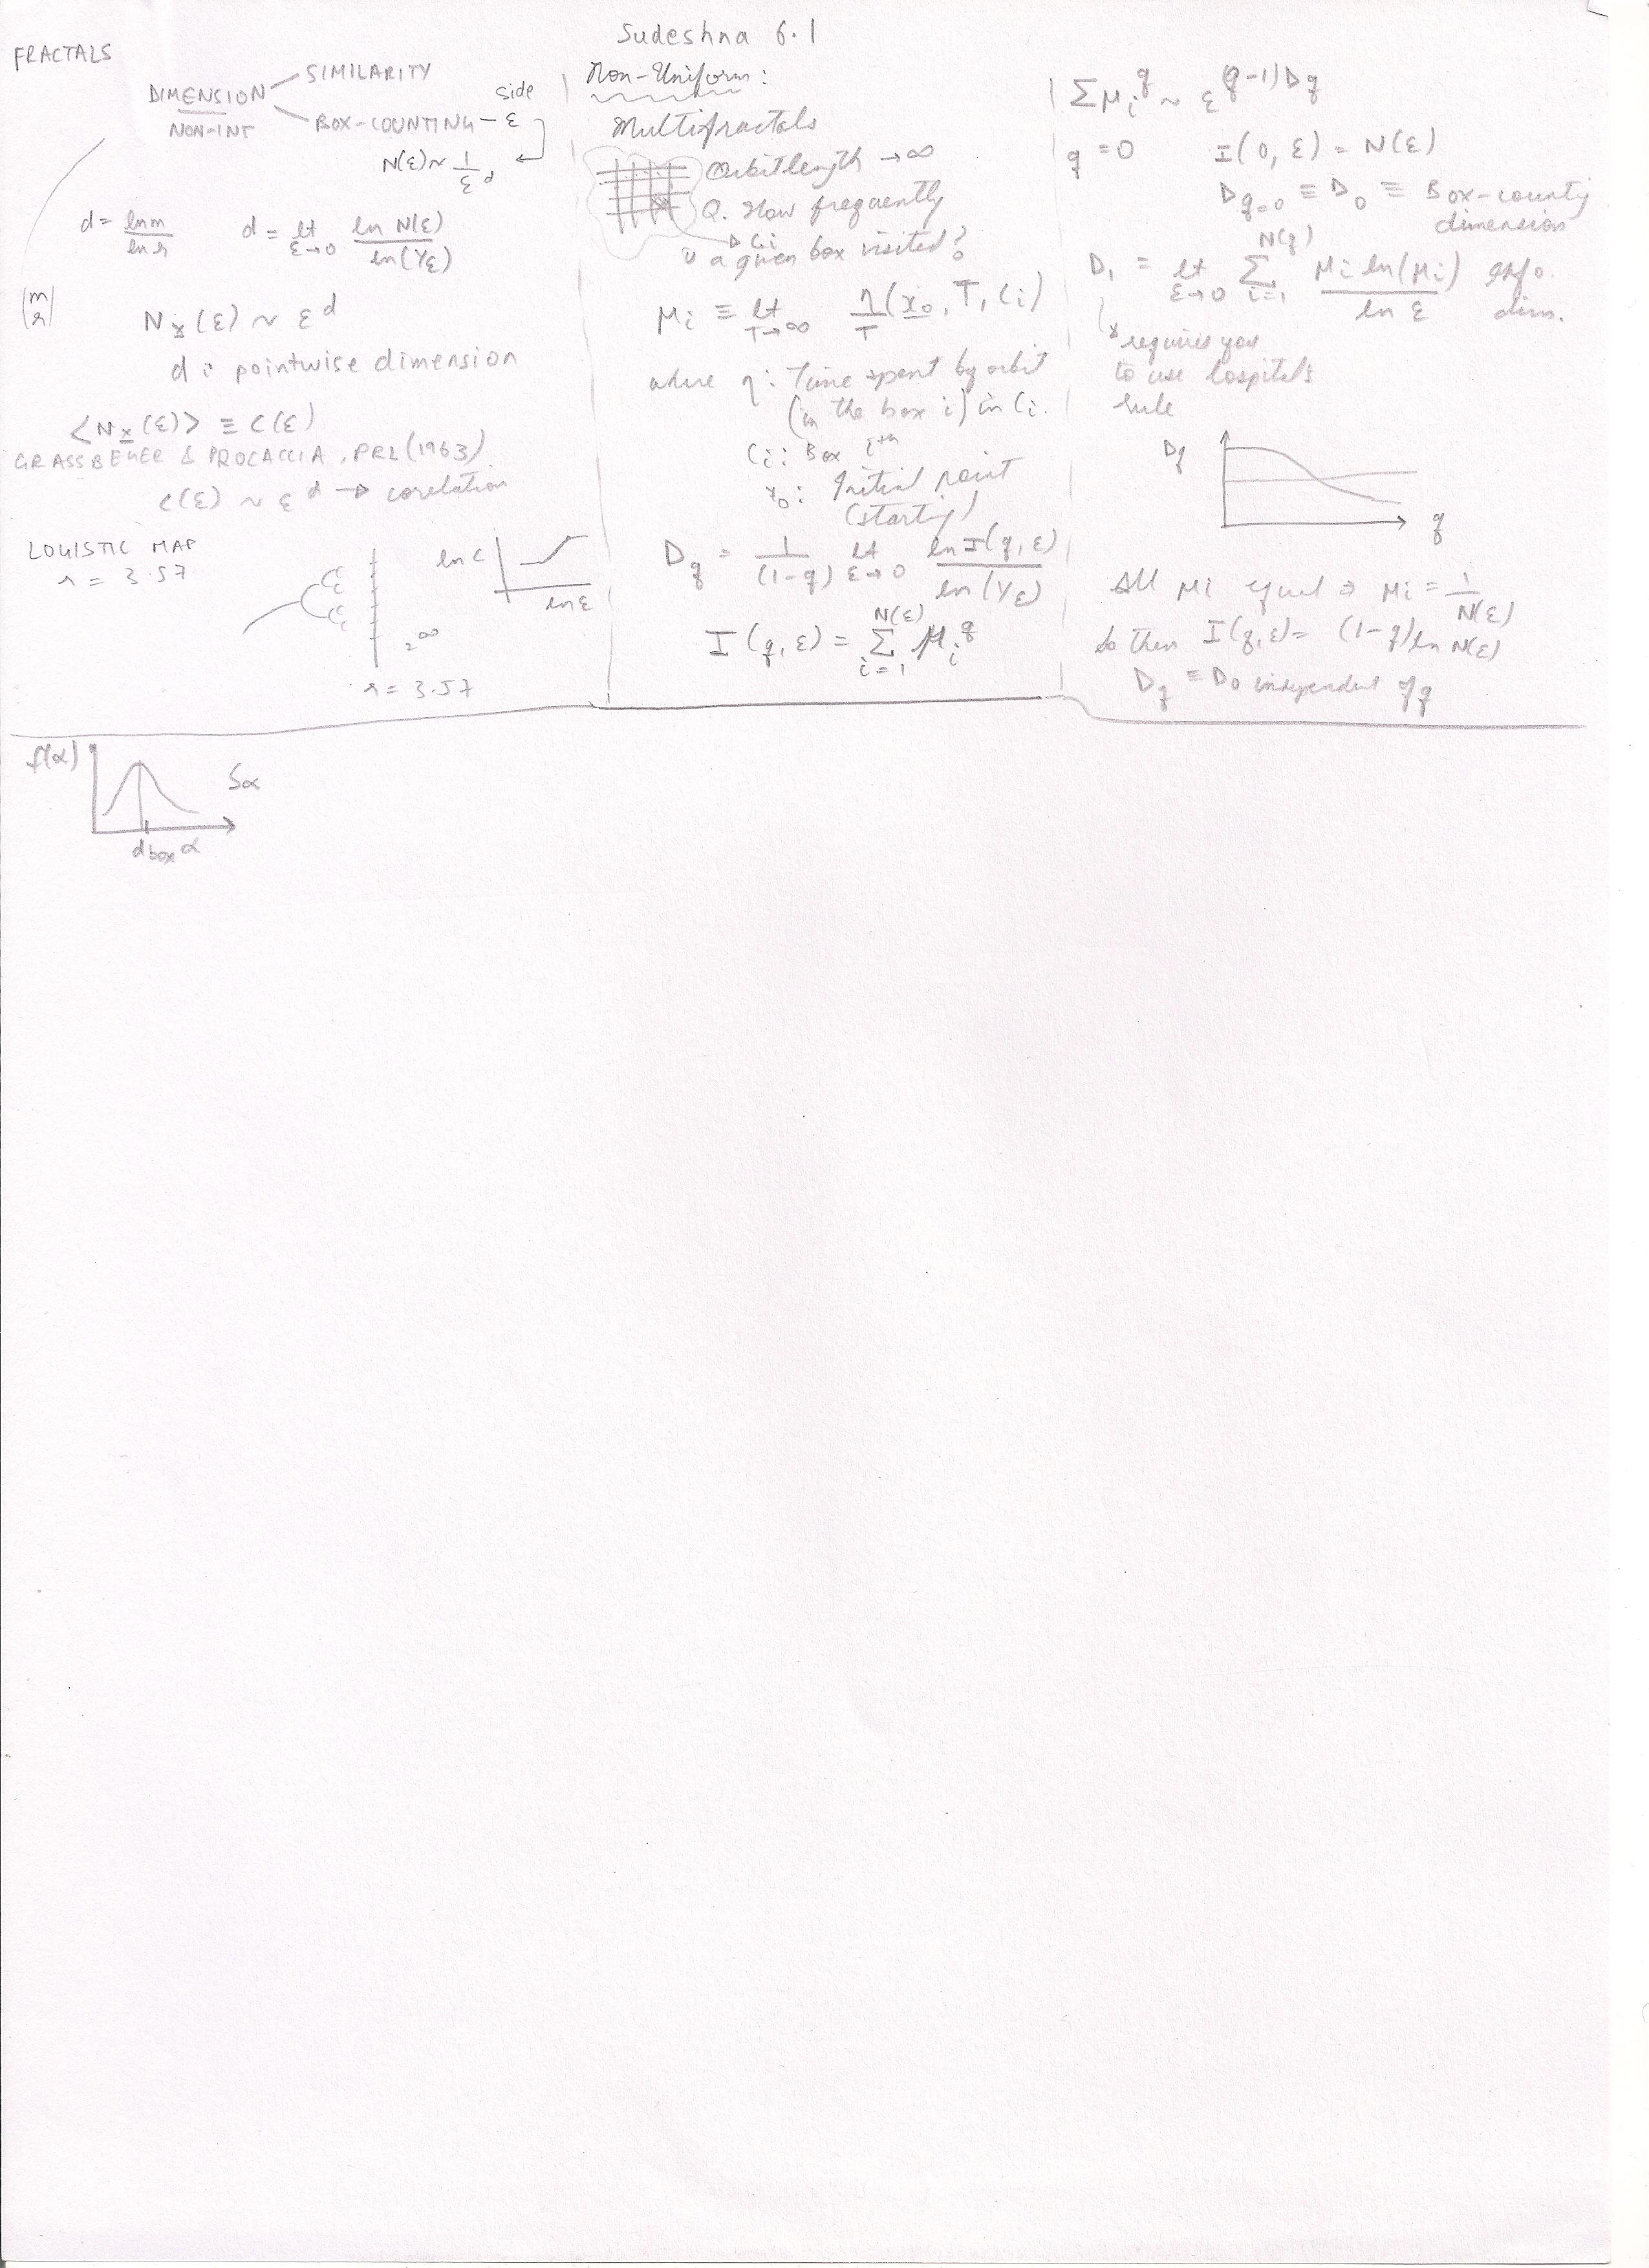 Sudeshna 6.1
FRACTALS
DIMENSION
NON-INT
SIMILARITY
BOX-COUNTING - ε
side
N(ε) ~ 1/ε^d
d = ln m / ln r
d = lt ε→0 ln N(ε) / ln(1/ε)
(m r)
N_x(ε) ~ ε^d
d : pointwise dimension
<N_x(ε)> ≡ C(ε)
GRASSBEGER & PROCACCIA, PRL (1963)
C(ε) ~ ε^d → corelation
LOGISTIC MAP
r = 3.57
2^∞
r = 3.57
ln C
ln ε
Non-Uniform:
Multifractals
Orbit length → ∞
Q. How frequently
Ci
is a given box visited?
μi ≡ lt T→∞ η(x0, T, Ci) / T
where η : Time spent by orbit
(in the box i) in Ci.
Ci : Box i^th
x0 : Initial point
(starting)
D_q = 1/(1-q) lt ε→0 ln I(q, ε) / ln(1/ε)
I(q, ε) = Σ_{i=1}^{N(ε)} μ_i^q
Σ μ_i^q ~ ε^{(q-1)D_q}
q = 0 I(0, ε) = N(ε)
D_{q=0} ≡ D_0 ≡ Box-county
dimension
D_1 = lt ε→0 Σ_{i=1}^{N(q)} μi ln(μi) / ln ε Info.
dim.
requires you
to use lospitals
rule
D_q
q
All μi equal ⇒ μi = 1/N(ε)
so then I(q, ε) = (1-q) ln N(ε)
D_q = D_0 independent of q
f(α)
Sα
d_box α